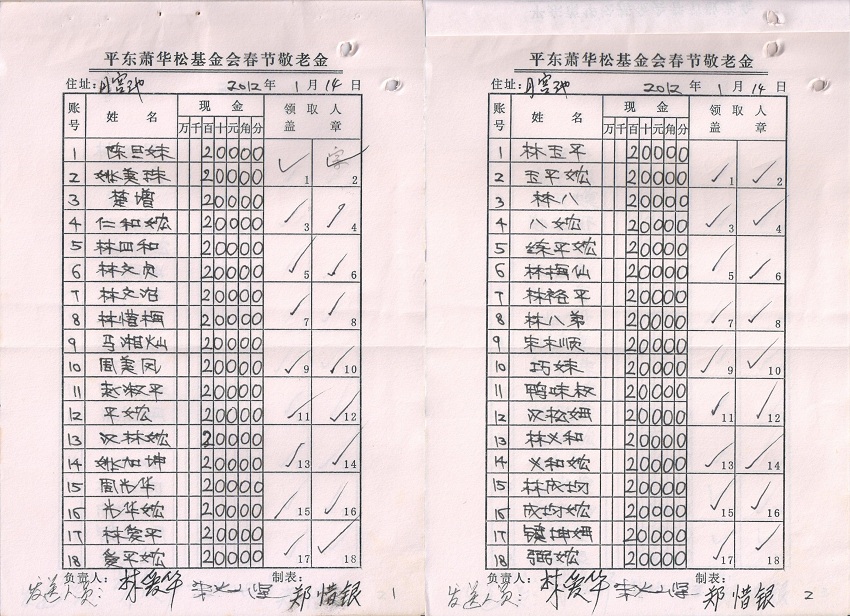 平东萧华松基金会春节敬老金
住址: 月宫池 2012年1月14日
账号 姓名 现金 领取人盖章
万千百十元角分
1 陈 妹 20000 1 2
2 姚美珠 20000
3 楚增 20000 3 4
4 仁和妶 20000
5 林四和 20000 5 6
6 林文贞 20000
7 林文治 20000 7 8
8 林惜梅 20000
9 马湘灿 20000 9 10
10 周美凤 20000
11 淑平 20000 11 12
12 平妶 20000
13 汉林妶 20000 13 14
14 姚加坤 20000
15 周光华 20000 15 16
16 光华妶 20000
17 林爱平 20000 17 18
18 爱平妶 20000
负责人: 林爱华 制表: 郑惜银
发送人员: 1
平东萧华松基金会春节敬老金
住址: 月宫池 2012年1月14日
账号 姓名 现金 领取人盖章
万千百十元角分
1 林玉平 20000 1 2
2 玉平妶 20000
3 林八 20000 3 4
4 八妶 20000
5 平妶 20000 5 6
6 林梅仙 20000
7 林裕平 20000 7 8
8 林八弟 20000
9 宋木顺 20000 9 10
10 巧妹 20000
11 鸭味叔 20000 11 12
12 汉松姗 20000
13 林义和 20000 13 14
14 义和妶 20000
15 林成均 20000 15 16
16 成均妶 20000
17 镇坤姗 20000 17 18
18 弼妶 20000
负责人: 林爱华 制表: 郑惜银
发送人员: 2